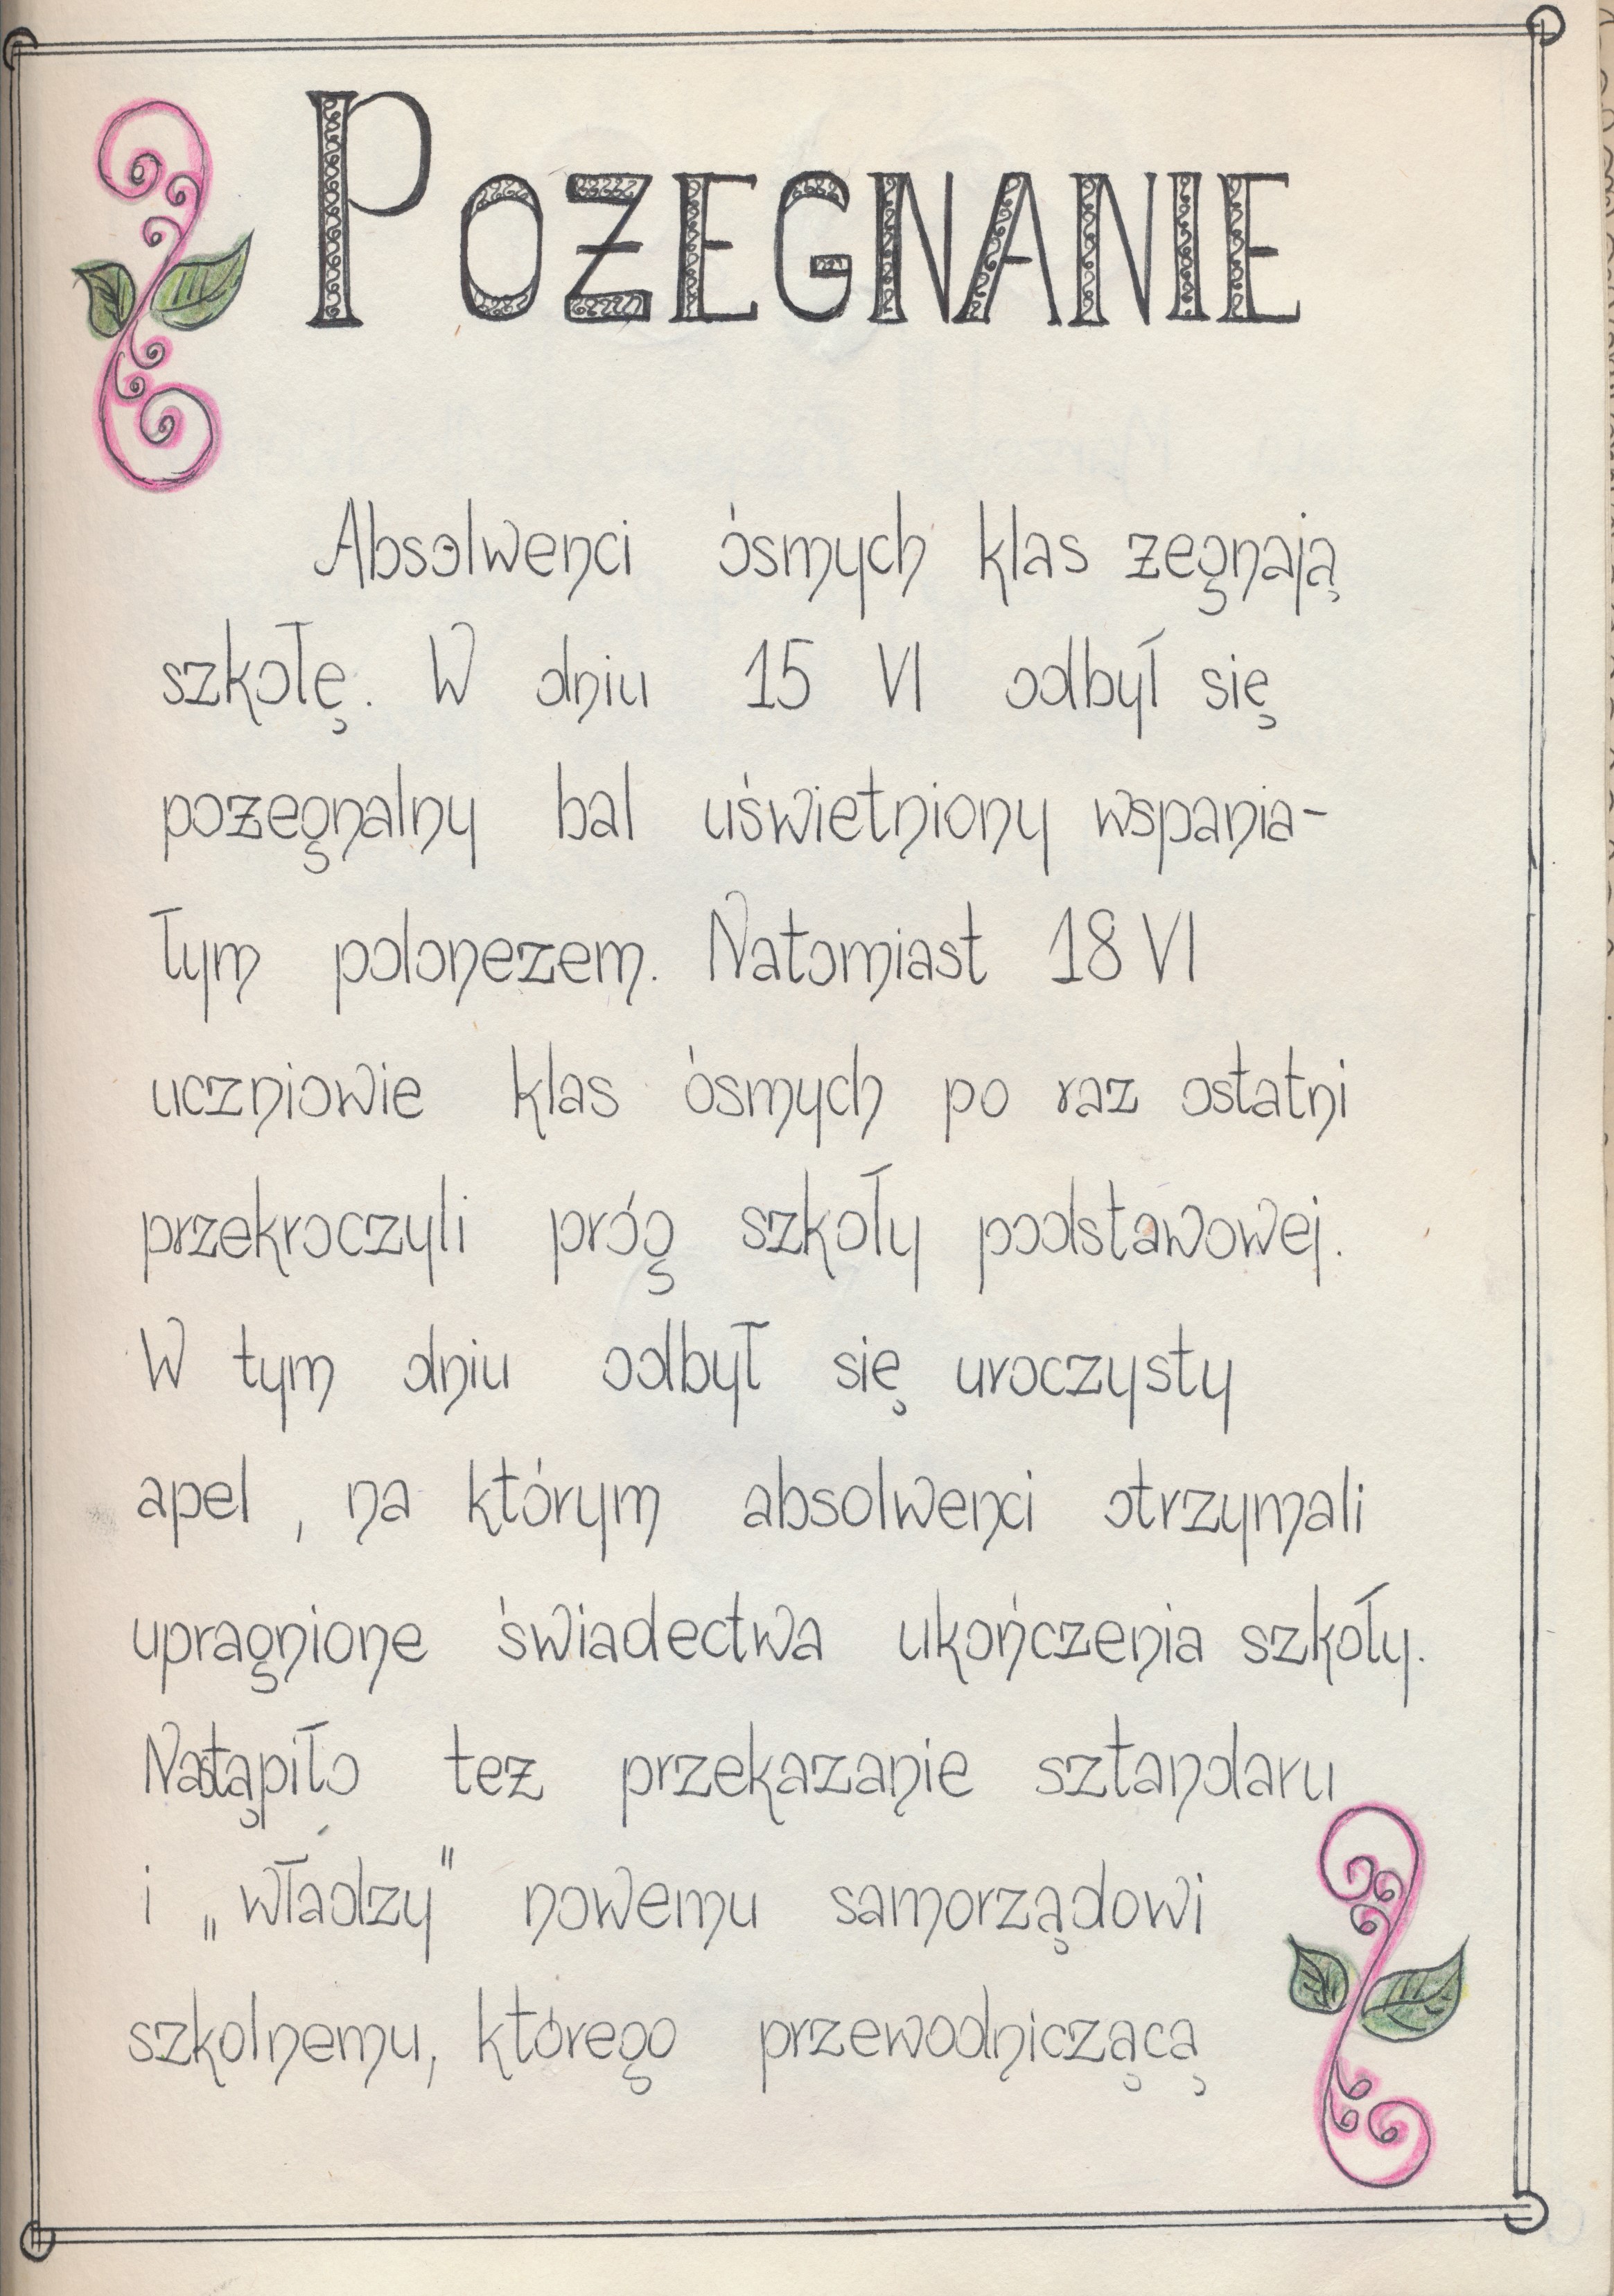 POŻEGNANIE
Absolwenci ósmych klas żegnają
szkołę. W dniu 15 VI odbył się
pożegnalny bal uświetniony wspania-
łym polonezem. Natomiast 18 VI
uczniowie klas ósmych po raz ostatni
przekroczyli próg szkoły podstawowej.
W tym dniu odbył się uroczysty
apel , na którym absolwenci otrzymali
upragnione świadectwa ukończenia szkoły.
Nastąpiło też przekazanie sztandaru
i „władzy" nowemu samorządowi
szkolnemu, którego przewodniczącą